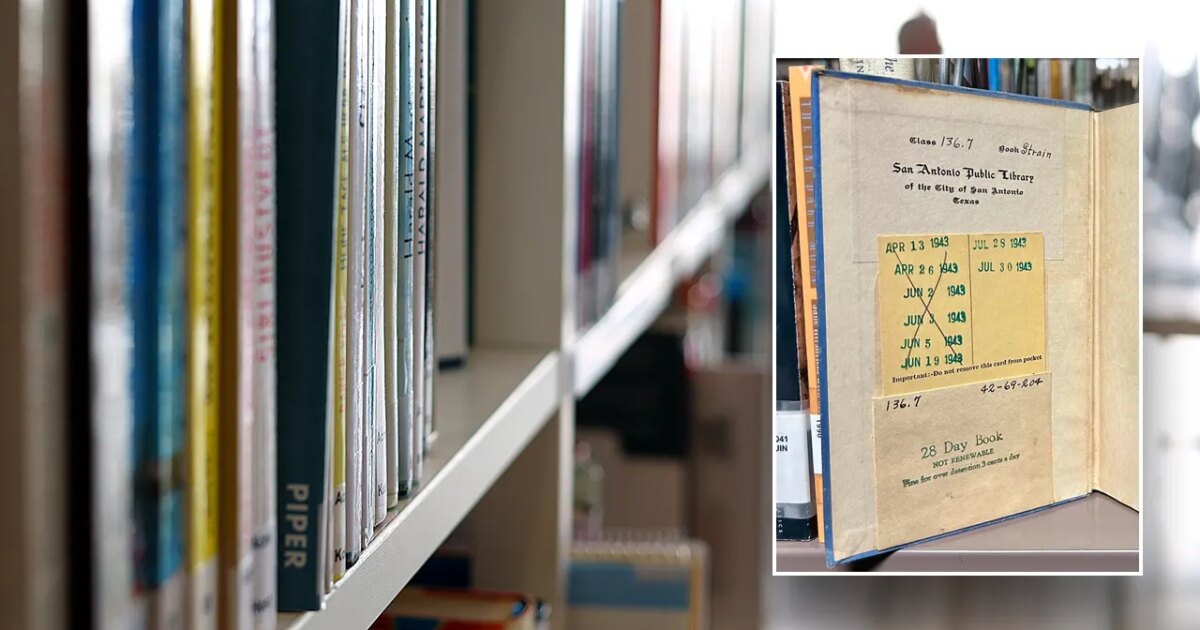 PIPER
Harald Mart
HARALD MART
Class 136.7 Book Strain
San Antonio Public Library
of the City of San Antonio
Texas
APR 13 1943
APR 26 1943
JUN 2 1943
JUN 3 1943
JUN 5 1943
JUN 19 1943
JUL 28 1943
JUL 30 1943
Important:-Do not remove this card from pocket
136.7 42-69-204
28 Day Book
NOT RENEWABLE
Fine for over detention 3 cents a day
041